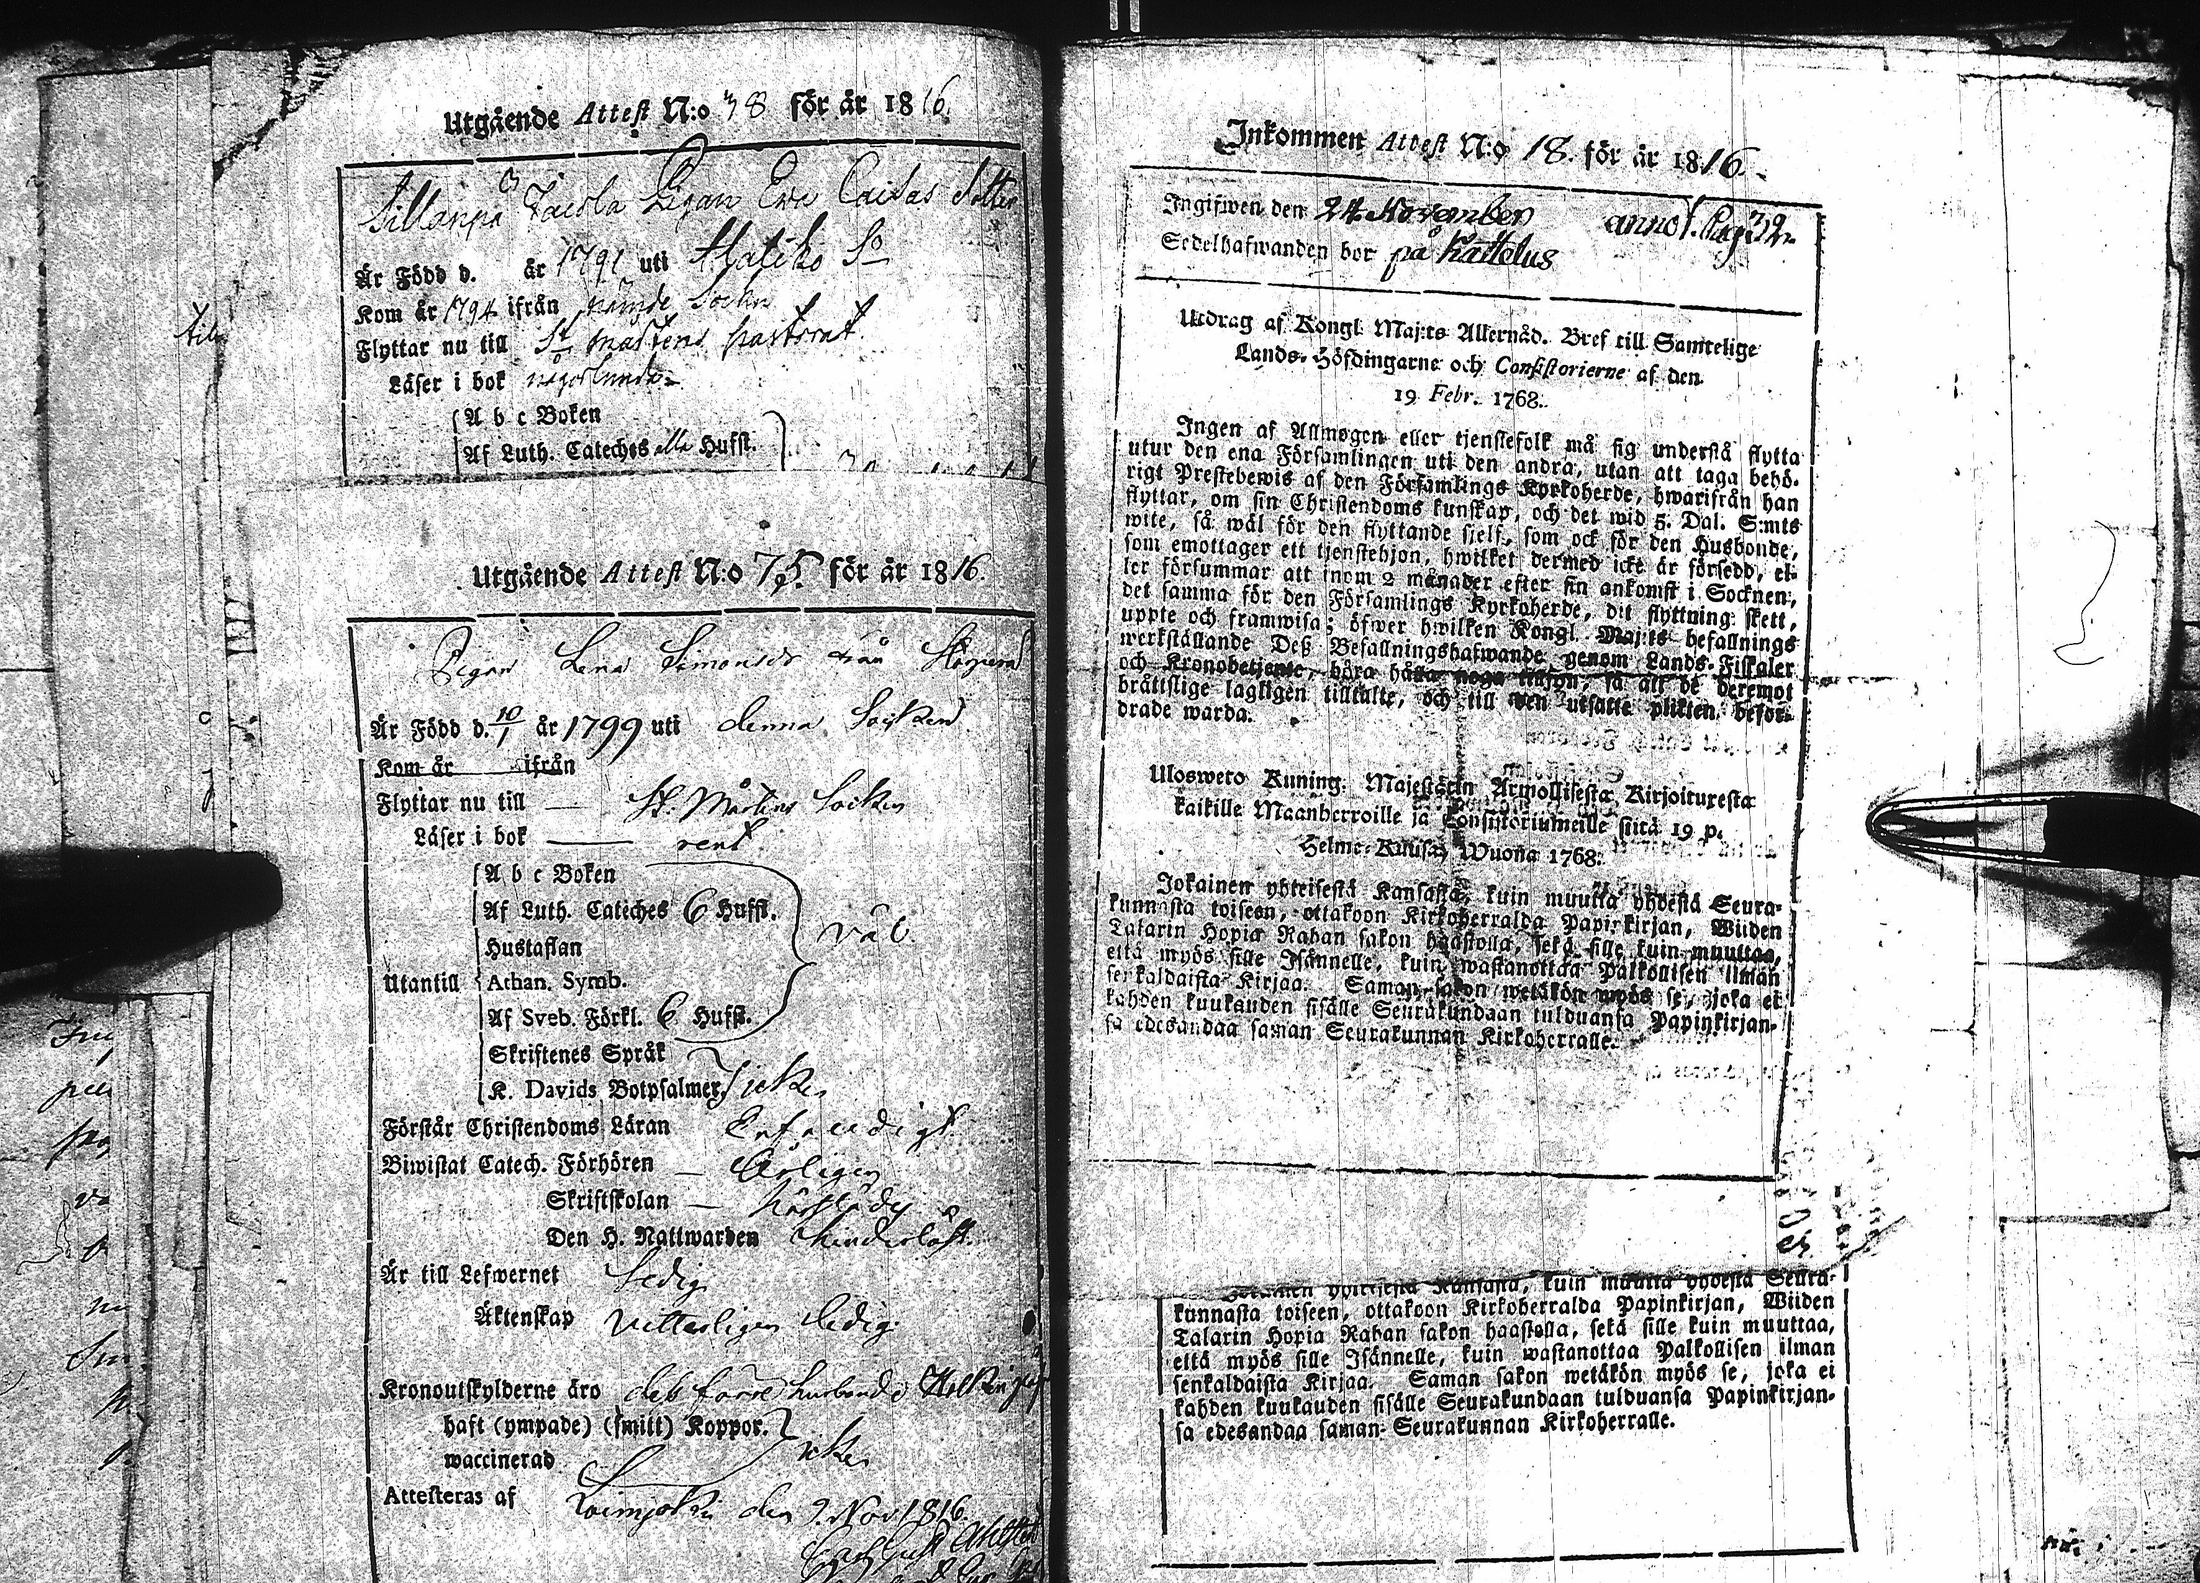 Utgående Attest N:o 78 för år 1816.
Sillanpä Jacola Pigan Eva Caisas dotter
Är Född d. år 1791 uti
Kom år 1794 ifrån nämde Socken
Flyttar nu till St Mårtens pastorat
Läser i bok någorlunda
A b c Boken
Af Luth. Cateches alla Hufst.
Utgående Attest N:o 75. för år 1816.
Pigan Lena Simonsdr från
Är Född d. 10/1 år 1799 uti denna Socken
Kom år ifrån
Flyttar nu till — St. Mårtens Socken
Läser i bok — rent
A b c Boken
Af Luth. Cateches 6 Hufst. väl.
Hustaflan
Utantill Athan. Symb.
Af Sveb. Förkl. 6 Hufst.
Skriftenes Språk
K. Davids Botpsalmer icke
Förstår Christendoms Läran
Biwistat Catech. Förhören — Årligen
Skriftskolan —
Den H. Nattwarden
Är till Lefwernet Ledig
Äktenskap vitterligen Ledig
Kronoutskylderne äro des förre husbonde
haft (ympade) (smitt) Koppor.
waccinerad icke
Attesteras af Loimijoki den 9. Nov 1816.
Inkommen Attest N:o 18. för år 1816.
Ingifwen den 24 November anno f. Pag: 32.
Sedelhafwanden bor på Kättelus
Utdrag af Kongl. Maj:ts Allernåd. Bref till Samtelige
Lands-Höfdingarne och Consistorierne af den
19 Febr. 1768.
Ingen af Allmogen eller tjenstefolk må sig understå flytta
utur den ena Församlingen uti den andra, utan att taga behö-
rigt Prestebewis af den Församlings Kyrkoherde, hwarifrån han
flyttar, om sin Christendoms kunskap, och det wid 5. Dal. S:mts
wite, så wäl för den flyttande sjelf, som ock för den Husbonde,
som emottager ett tjenstehjon, hwilket dermed icke är försedd, el-
ler försummar att inom 2 månader efter sin ankomst i Socknen,
det samma för den Församlings Kyrkoherde, dit flyttning skett,
uppte och framwisa; öfwer hwilken Kongl. Maj:ts befallnings
werkställande Deß Befallningshafwande genom Lands-Fiskaler
och Kronobetjente, böra hålla noga tillsyn, så att de deremot
bråttslige lagligen tilltalte, och till den utsatte plikten befor-
drade warda.
Ulosweto Kuning. Majestätin Armollisesta Kirjoituxesta
kaikille Maanherroille ja Consistoriumeille siitä 19 p.
Helme-Kuusa Wuona 1768.
Jokainen yhteisestä Kansasta, kuin muutta yhdestä Seura-
kunnasta toiseen, ottakoon Kirkoherralda Papinkirjan, Wiiden
Talarin Hopia Rahan sakon haastolla, sekä sille kuin muuttaa,
että myös sille Isännelle, kuin wastanottaa Palkollisen ilman
senkaldaista Kirjaa. Saman sakon wetäkön myös se, joka ei
kahden kuukauden sisälle Seurakundaan tulduansa Papinkirjan-
sa edesandaa saman Seurakunnan Kirkoherralle.
yhteisestä Kansasta, kuin muutta yhdestä Seura-
kunnasta toiseen, ottakoon Kirkoherralda Papinkirjan, Wiiden
Talarin Hopia Rahan sakon haastolla, sekä sille kuin muuttaa,
että myös sille Isännelle, kuin wastanottaa Palkollisen ilman
senkaldaista Kirjaa. Saman sakon wetäkön myös se, joka ei
kahden kuukauden sisälle Seurakundaan tulduansa Papinkirjan-
sa edesandaa saman Seurakunnan Kirkoherralle.